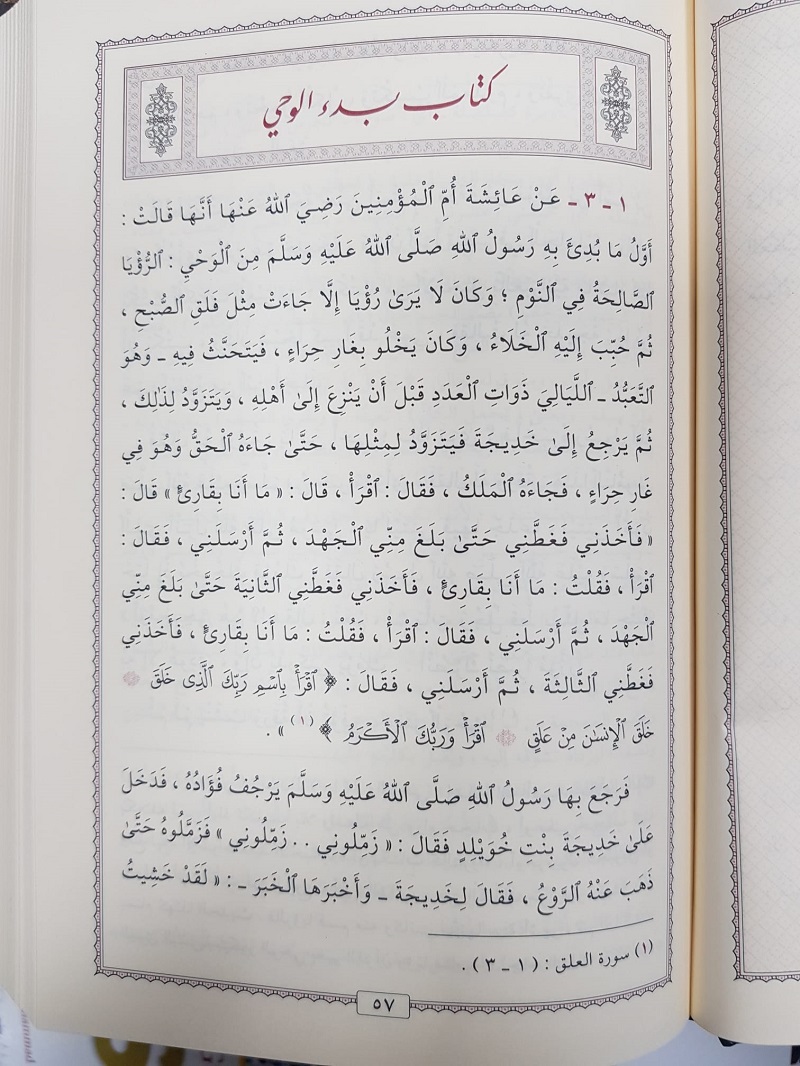 كتاب بدء الوحي
١ - ٣ - عَنْ عَائِشَةَ أُمِّ ٱلْمُؤْمِنِينَ رَضِيَ ٱللهُ عَنْهَا أَنَّهَا قَالَتْ :
أَوَّلُ مَا بُدِئَ بِهِ رَسُولُ ٱللهِ صَلَّى ٱللهُ عَلَيْهِ وَسَلَّمَ مِنَ ٱلْوَحْيِ : ٱلرُّؤْيَا
ٱلصَّالِحَةُ فِي ٱلنَّوْمِ ؛ وَكَانَ لَا يَرَىٰ رُؤْيَا إِلَّا جَاءَتْ مِثْلَ فَلَقِ ٱلصُّبْحِ ،
ثُمَّ حُبِّبَ إِلَيْهِ ٱلْخَلَاءُ ، وَكَانَ يَخْلُو بِغَارِ حِرَاءٍ ، فَيَتَحَنَّثُ فِيهِ - وَهُوَ
ٱلتَّعَبُّدُ - ٱللَّيَالِيَ ذَوَاتِ ٱلْعَدَدِ قَبْلَ أَنْ يَنْزِعَ إِلَىٰ أَهْلِهِ ، وَيَتَزَوَّدُ لِذَلِكَ ،
ثُمَّ يَرْجِعُ إِلَىٰ خَدِيجَةَ فَيَتَزَوَّدُ لِمِثْلِهَا ، حَتَّىٰ جَاءَهُ ٱلْحَقُّ وَهُوَ فِي
غَارِ حِرَاءٍ ، فَجَاءَهُ ٱلْمَلَكُ ، فَقَالَ : ٱقْرَأْ ، قَالَ : « مَا أَنَا بِقَارِئٍ » قَالَ :
« فَأَخَذَنِي فَغَطَّنِي حَتَّىٰ بَلَغَ مِنِّي ٱلْجَهْدَ ، ثُمَّ أَرْسَلَنِي ، فَقَالَ :
ٱقْرَأْ ، فَقُلْتُ : مَا أَنَا بِقَارِئٍ ، فَأَخَذَنِي فَغَطَّنِي ٱلثَّانِيَةَ حَتَّىٰ بَلَغَ مِنِّي
ٱلْجَهْدَ ، ثُمَّ أَرْسَلَنِي ، فَقَالَ : ٱقْرَأْ ، فَقُلْتُ : مَا أَنَا بِقَارِئٍ ، فَأَخَذَنِي
فَغَطَّنِي ٱلثَّالِثَةَ ، ثُمَّ أَرْسَلَنِي ، فَقَالَ : ﴿ ٱقْرَأْ بِٱسْمِ رَبِّكَ ٱلَّذِى خَلَقَ
خَلَقَ ٱلْإِنسَـٰنَ مِنْ عَلَقٍ ٱقْرَأْ وَرَبُّكَ ٱلْأَكْرَمُ ﴾ (١) » .
فَرَجَعَ بِهَا رَسُولُ ٱللهِ صَلَّى ٱللهُ عَلَيْهِ وَسَلَّمَ يَرْجُفُ فُؤَادُهُ ، فَدَخَلَ
عَلَىٰ خَدِيجَةَ بِنْتِ خُوَيْلِدٍ فَقَالَ : « زَمِّلُونِي . . زَمِّلُونِي » فَزَمَّلُوهُ حَتَّىٰ
ذَهَبَ عَنْهُ ٱلرَّوْعُ ، فَقَالَ لِخَدِيجَةَ - وَأَخْبَرَهَا ٱلْخَبَرَ - : « لَقَدْ خَشِيتُ
(١) سورة العلق : ( ١ - ٣ ) .
٥٧